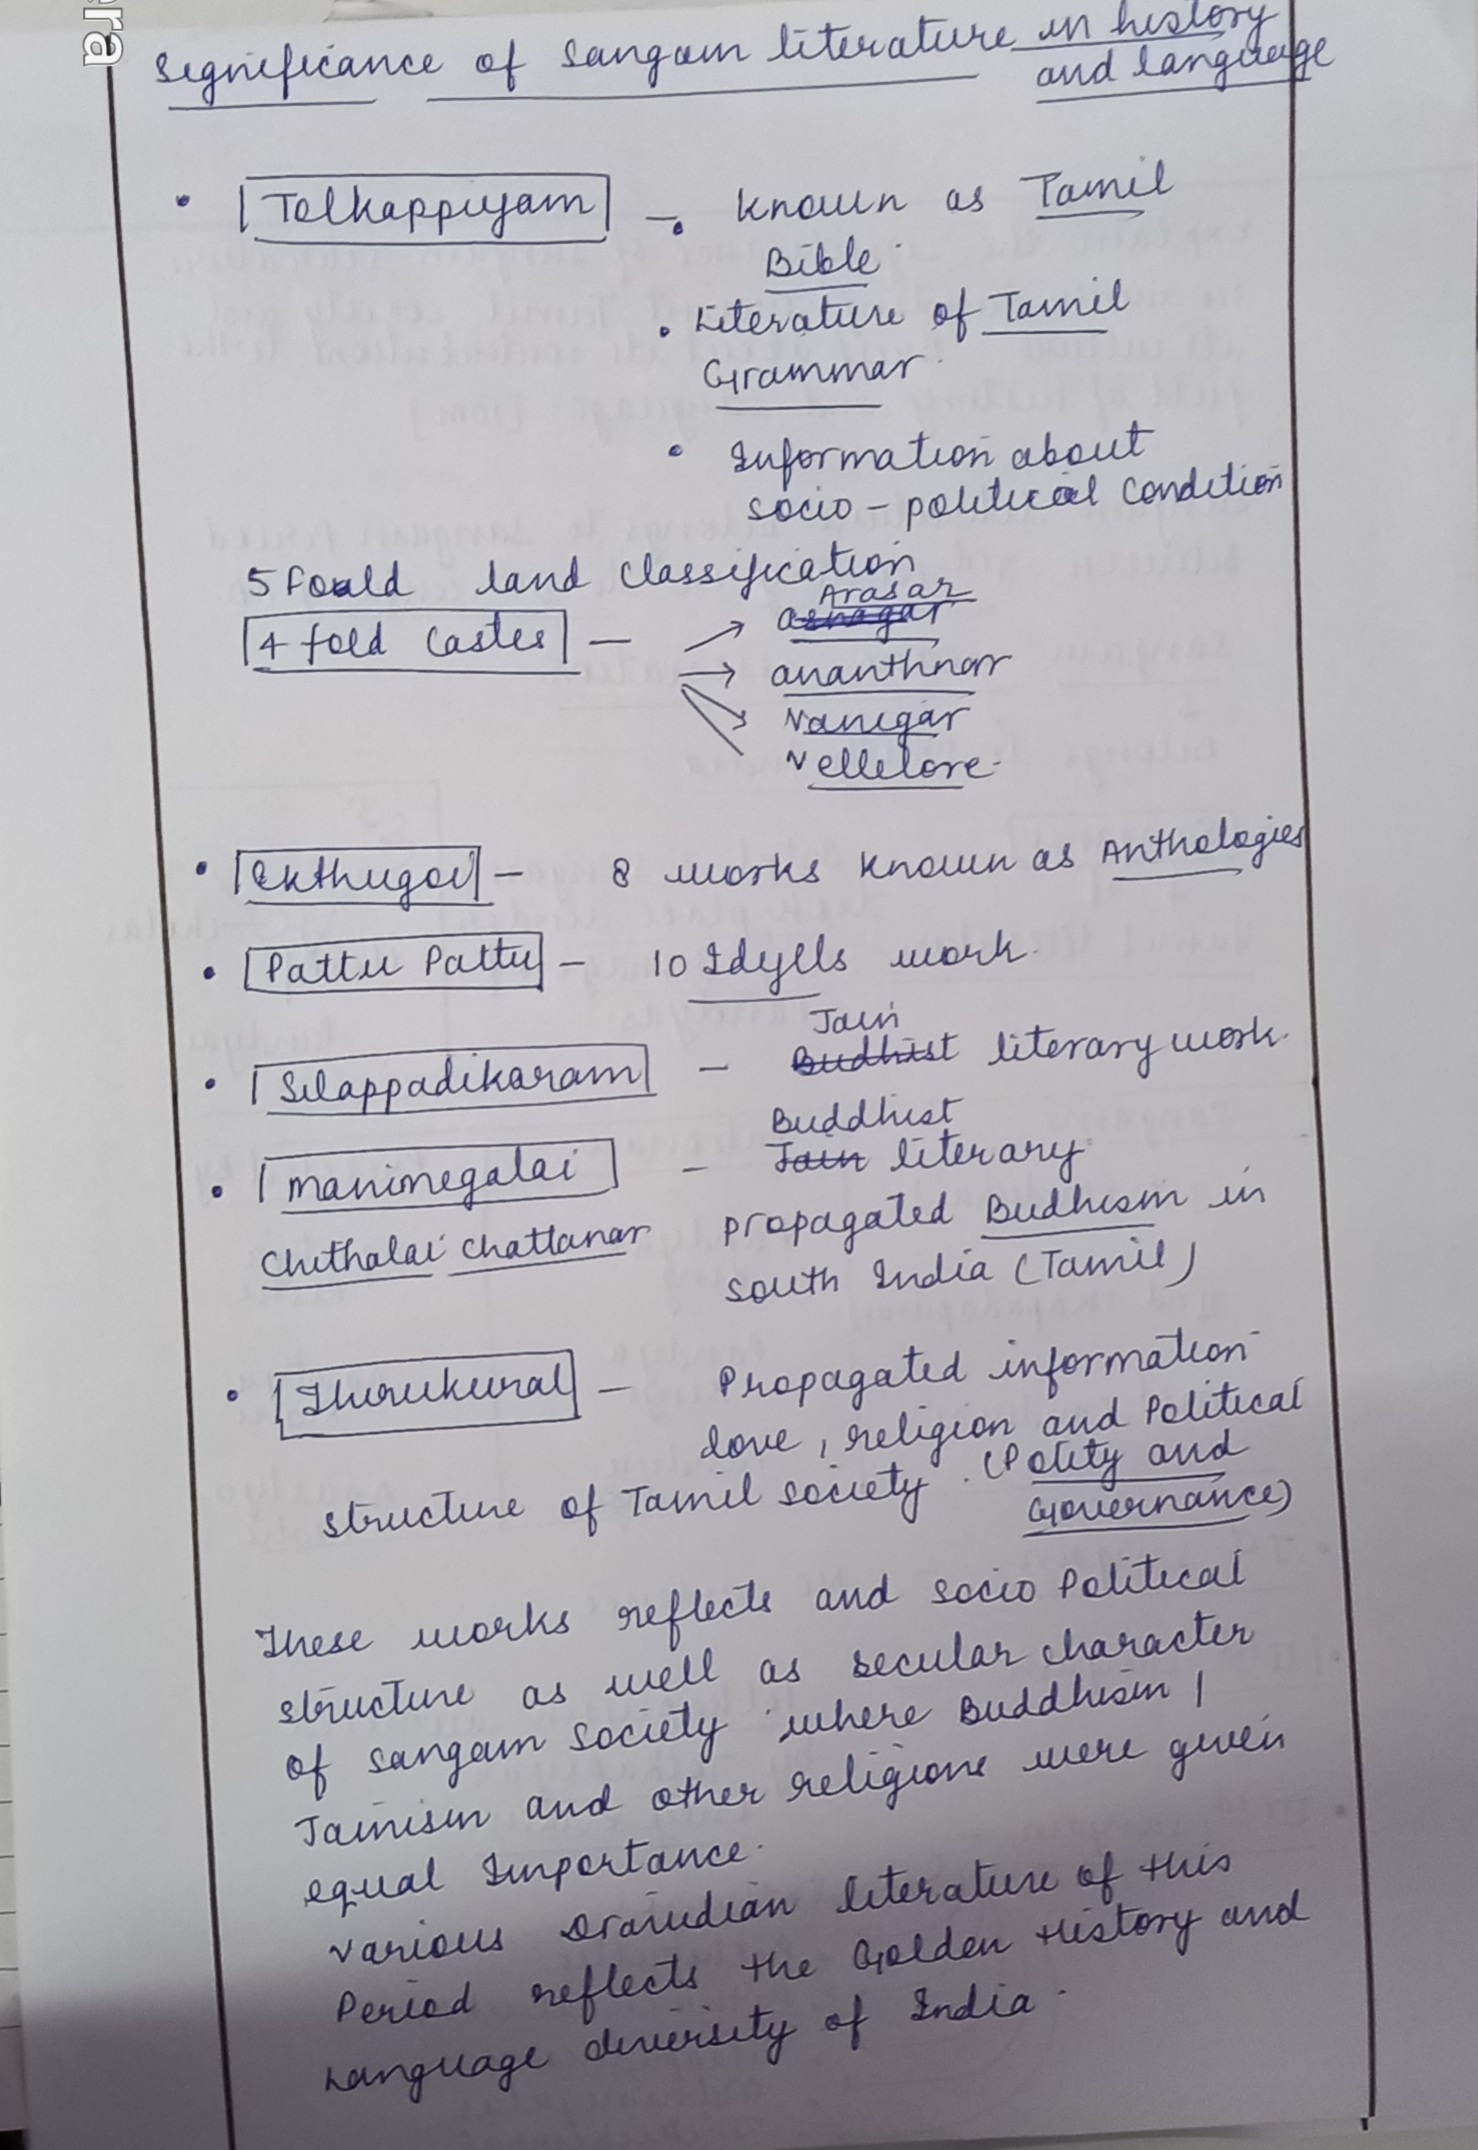 era
Significance of Sangam literature in history
and language
• Tolkappiyam —• Known as Tamil
Bible.
• Literature of Tamil
Grammar.
• Information about
socio-political condition
5 Foald land classification
4 fold Castes — → Arasar asnagar
→ ananthnar
Vanigar
Vellelore.
• Ekthugoi – 8 works known as Anthologies
• Pattu Pattu – 10 Idylls work.
• Silappadikaram – Jain Budhist literary work.
• manimegalai – Buddhist Jain literary.
Chithalai Chattanar propagated Budhism in
south India (Tamil)
• Thirukural – Propagated information
love, religion and Political
structure of Tamil society. (Polity and
Governance)
These works reflects and socio Political
structure as well as secular character
of sangam society where Buddhism |
Jainism and other religions were given
equal Importance.
various Dravidian literature of this
Period reflects the Golden History and
Language diversity of India.